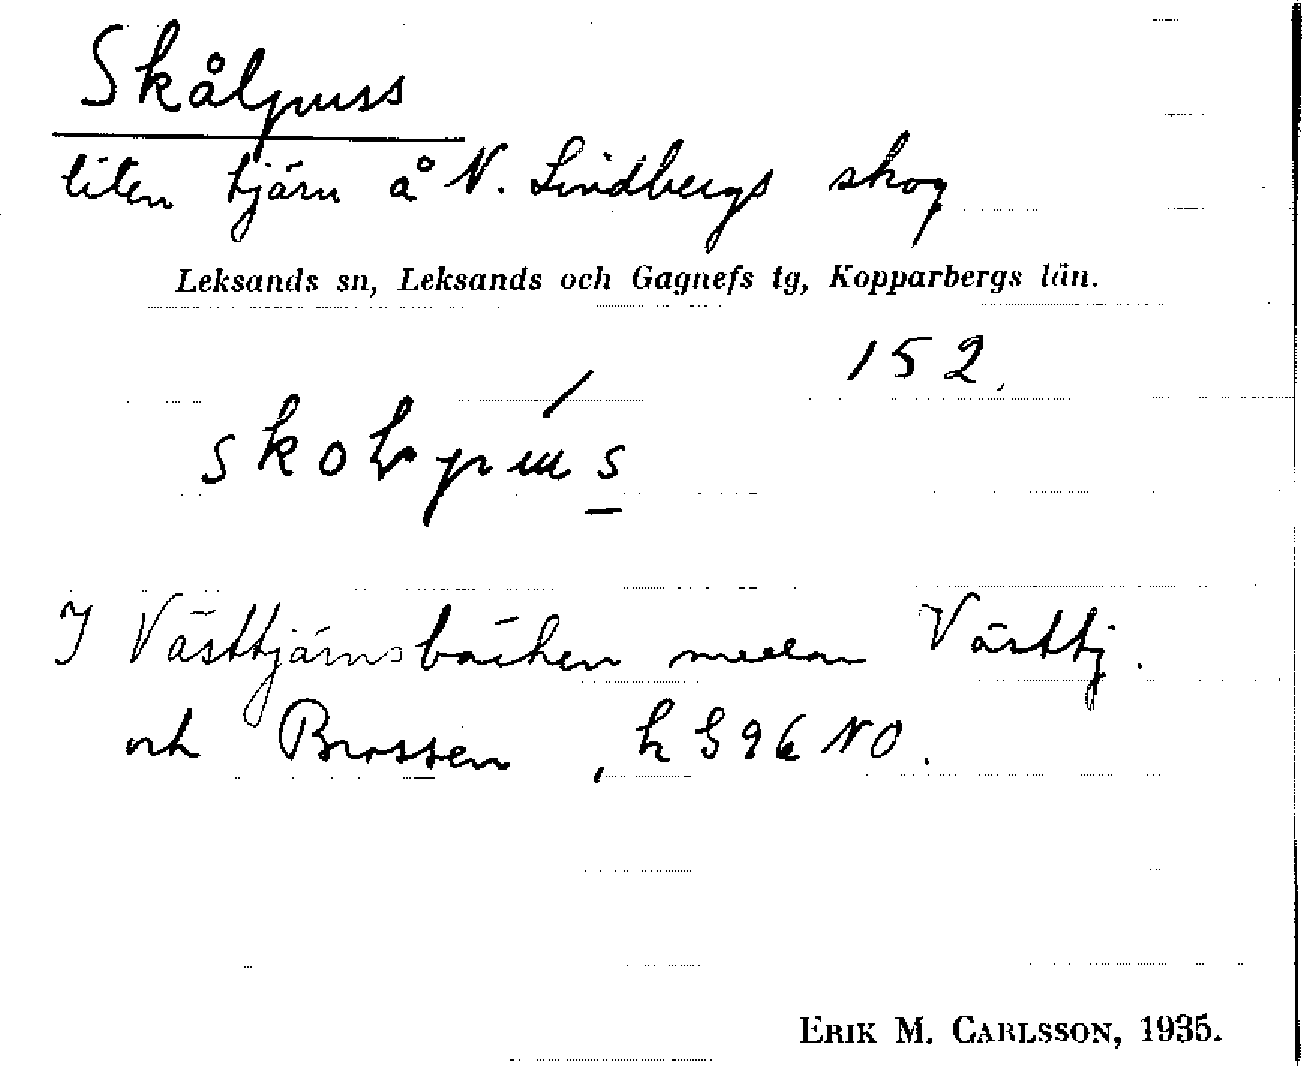 Skålpuss
liten tjärn å N. Lindbergs skog
Leksands sn, Leksands och Gagnefs tg, Kopparbergs län.
152.
I Västtjärnsbäcken mellan Västtj.
och Brossen, NO.
ERIK M. CARLSSON, 1935.